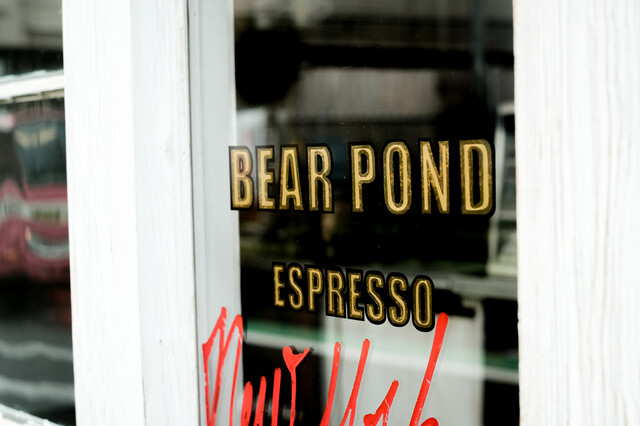 BEAR POND
ESPRESSO